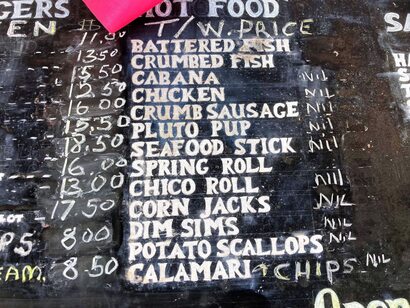 GERS HOT FOOD SA
EN T/W. PRICE
BATTERED FISH
13.50 CRUMBED FISH
15.50 CABANA Nil
12.50 CHICKEN Nil
16.00 CRUMB SAUSAGE Nil
15.50 PLUTO PUP Nil
18.50 SEAFOOD STICK Nil
16.00 SPRING ROLL
13.00 CHICO ROLL Nil
17.50 CORN JACKS NIL
DIM SIMS NIL
PS 8.00 POTATO SCALLOPS NIL
EAM. 8.50 CALAMARI + CHIPS NIL